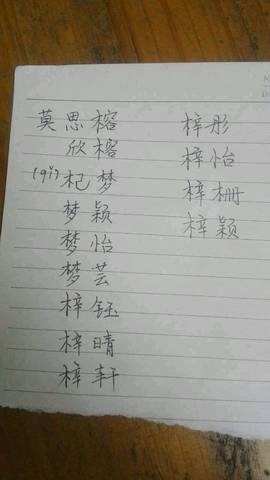 莫思榕
欣榕
(qǐ)杞梦
梦颖
梦怡
梦芸
梓钰
梓晴
梓轩
梓彤
梓怡
梓栅
梓颖